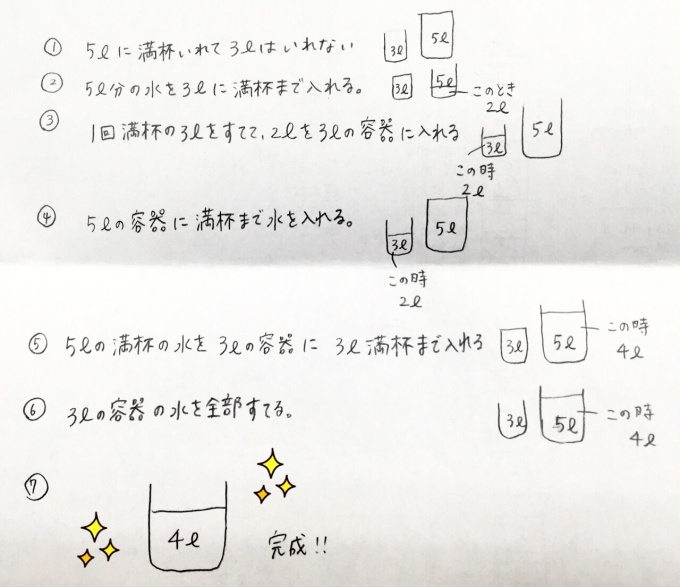 ① 5ℓに満杯いれて3ℓはいれない 3ℓ 5ℓ
② 5ℓ分の水を3ℓに満杯まで入れる。 3ℓ 5ℓ
このとき
2ℓ
③ 1回満杯の3ℓをすてて、2ℓを3ℓの容器に入れる 3ℓ 5ℓ
この時
2ℓ
④ 5ℓの容器に満杯まで水を入れる。 3ℓ 5ℓ
この時
2ℓ
⑤ 5ℓの満杯の水を3ℓの容器に 3ℓ満杯まで入れる 3ℓ 5ℓ この時
4ℓ
⑥ 3ℓの容器の水を全部すてる。 3ℓ 5ℓ この時
4ℓ
⑦
4ℓ 完成!!